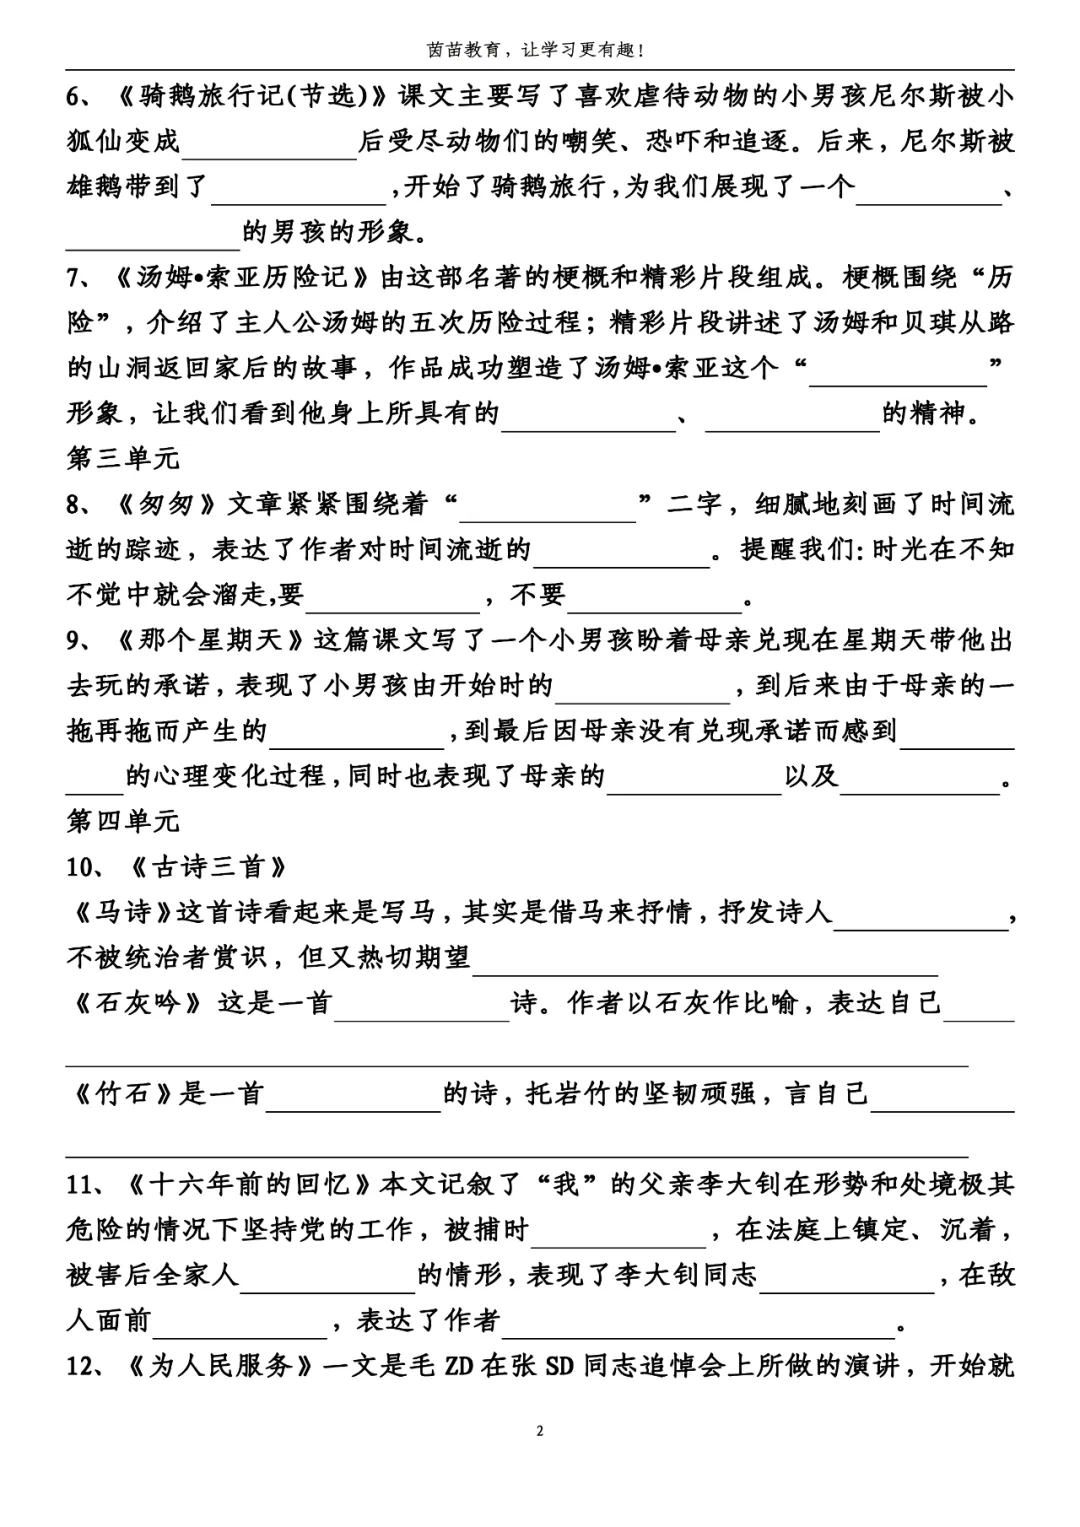 茵苗教育，让学习更有趣！
6、《骑鹅旅行记(节选)》课文主要写了喜欢虐待动物的小男孩尼尔斯被小
狐仙变成____________后受尽动物们的嘲笑、恐吓和追逐。后来，尼尔斯被
雄鹅带到了____________,开始了骑鹅旅行,为我们展现了一个__________、
____________的男孩的形象。
7、《汤姆•索亚历险记》由这部名著的梗概和精彩片段组成。梗概围绕“历
险”，介绍了主人公汤姆的五次历险过程；精彩片段讲述了汤姆和贝琪从路
的山洞返回家后的故事，作品成功塑造了汤姆•索亚这个“____________”
形象，让我们看到他身上所具有的____________、____________的精神。
第三单元
8、《匆匆》文章紧紧围绕着“____________”二字，细腻地刻画了时间流
逝的踪迹，表达了作者对时间流逝的____________。提醒我们:时光在不知
不觉中就会溜走,要____________，不要____________。
9、《那个星期天》这篇课文写了一个小男孩盼着母亲兑现在星期天带他出
去玩的承诺，表现了小男孩由开始时的____________，到后来由于母亲的一
拖再拖而产生的____________,到最后因母亲没有兑现承诺而感到________
____的心理变化过程,同时也表现了母亲的____________以及___________。
第四单元
10、《古诗三首》
《马诗》这首诗看起来是写马，其实是借马来抒情，抒发诗人____________，
不被统治者赏识，但又热切期望________________________________
《石灰吟》 这是一首____________诗。作者以石灰作比喻，表达自己_____
______________________________________________________________
《竹石》是一首____________的诗，托岩竹的坚韧顽强，言自己__________
______________________________________________________________
11、《十六年前的回忆》本文记叙了“我”的父亲李大钊在形势和处境极其
危险的情况下坚持党的工作，被捕时____________，在法庭上镇定、沉着，
被害后全家人____________的情形，表现了李大钊同志____________，在敌
人面前____________，表达了作者___________________________。
12、《为人民服务》一文是毛 ZD 在张 SD 同志追悼会上所做的演讲，开始就
2